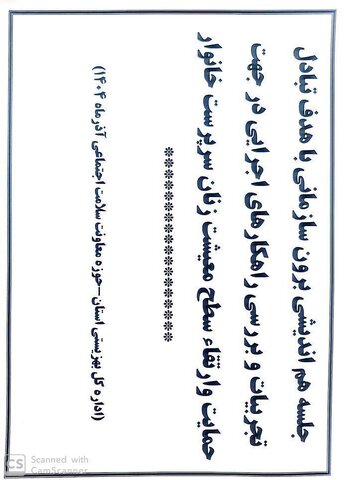 جلسه هم اندیشی برون سازمانی با هدف تبادل
تجربیات و بررسی راهکارهای اجرایی در جهت
حمایت وارتقاء سطح معیشت زنان سرپرست خانوار
******************
(اداره کل بهزیستی استان–حوزه معاونت سلامت اجتماعی آذرماه ۱۴۰۴)
CS Scanned with
CamScanner